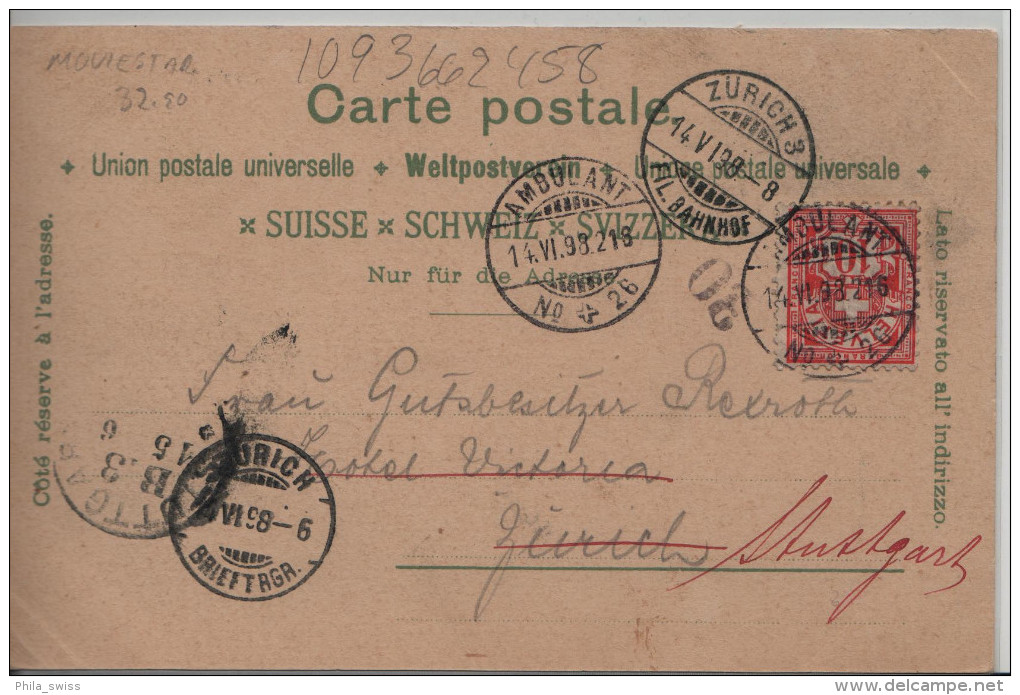 MOVIESTAR
32.50
1093662458
Carte postale
Union postale universelle + Weltpostverein + Unione postale universale
SUISSE × SCHWEIZ × SVIZZERA
Nur für die Adresse
Côté réservé à l'adresse.
Lato riservato all' indirizzo.
ZÜRICH 3
14.VI.98.-8
FIL. BAHNHOF
AMBULANT
14.VI.98.218
No 26
AMBULANT
14.VI.98.216
No 26
10
Frau Gutsbesitzer Rexroth
Hotel Victoria
Zürich Stuttgart
ZÜRICH
VI.98-9
BRIEFTRGR.
Phila_swiss